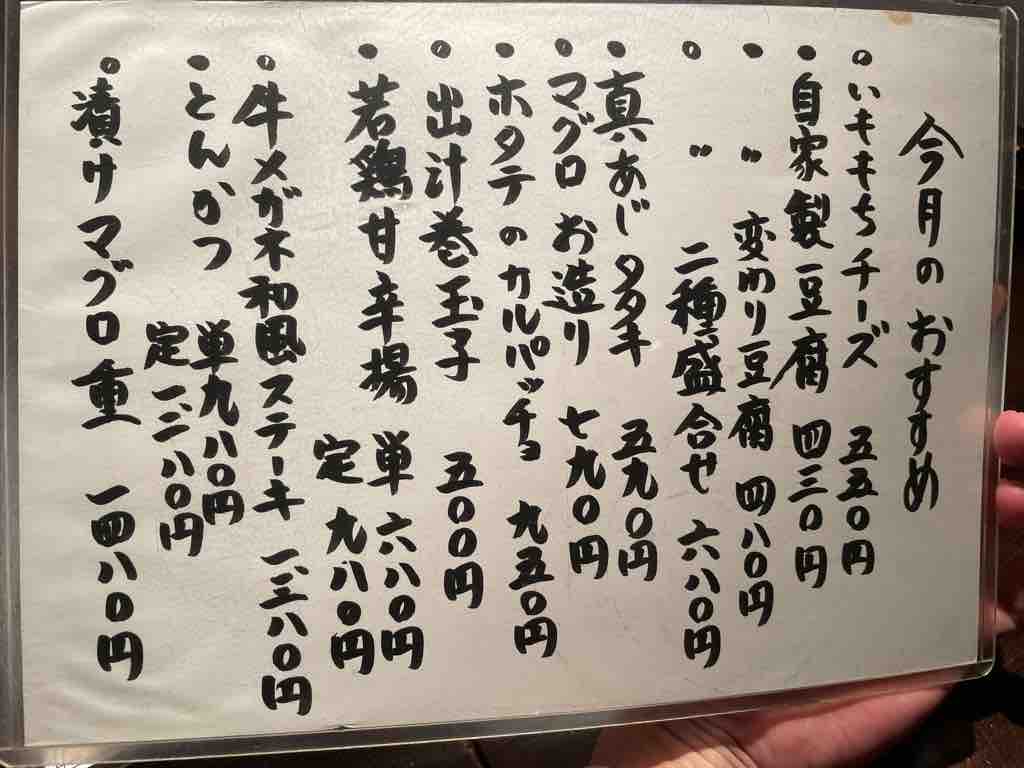 今月のおすすめ
・いキキちチーズ 五五〇円
・自家製豆腐 四三〇円
・〃 変わり豆腐 四八〇円
・〃 二種盛合せ 六八〇円
・真あじタタキ 五九〇円
・マグロ お造り 七九〇円
・ホタテのカルパッチョ 九五〇円
・出汁巻玉子 五〇〇円
・若鶏甘辛揚 単 六八〇円
定 九八〇円
・牛メガネ和風ステーキ 一、三八〇円
・とんかつ 単九八〇円
定一、二八〇円
・漬けマグロ重 一四八〇円